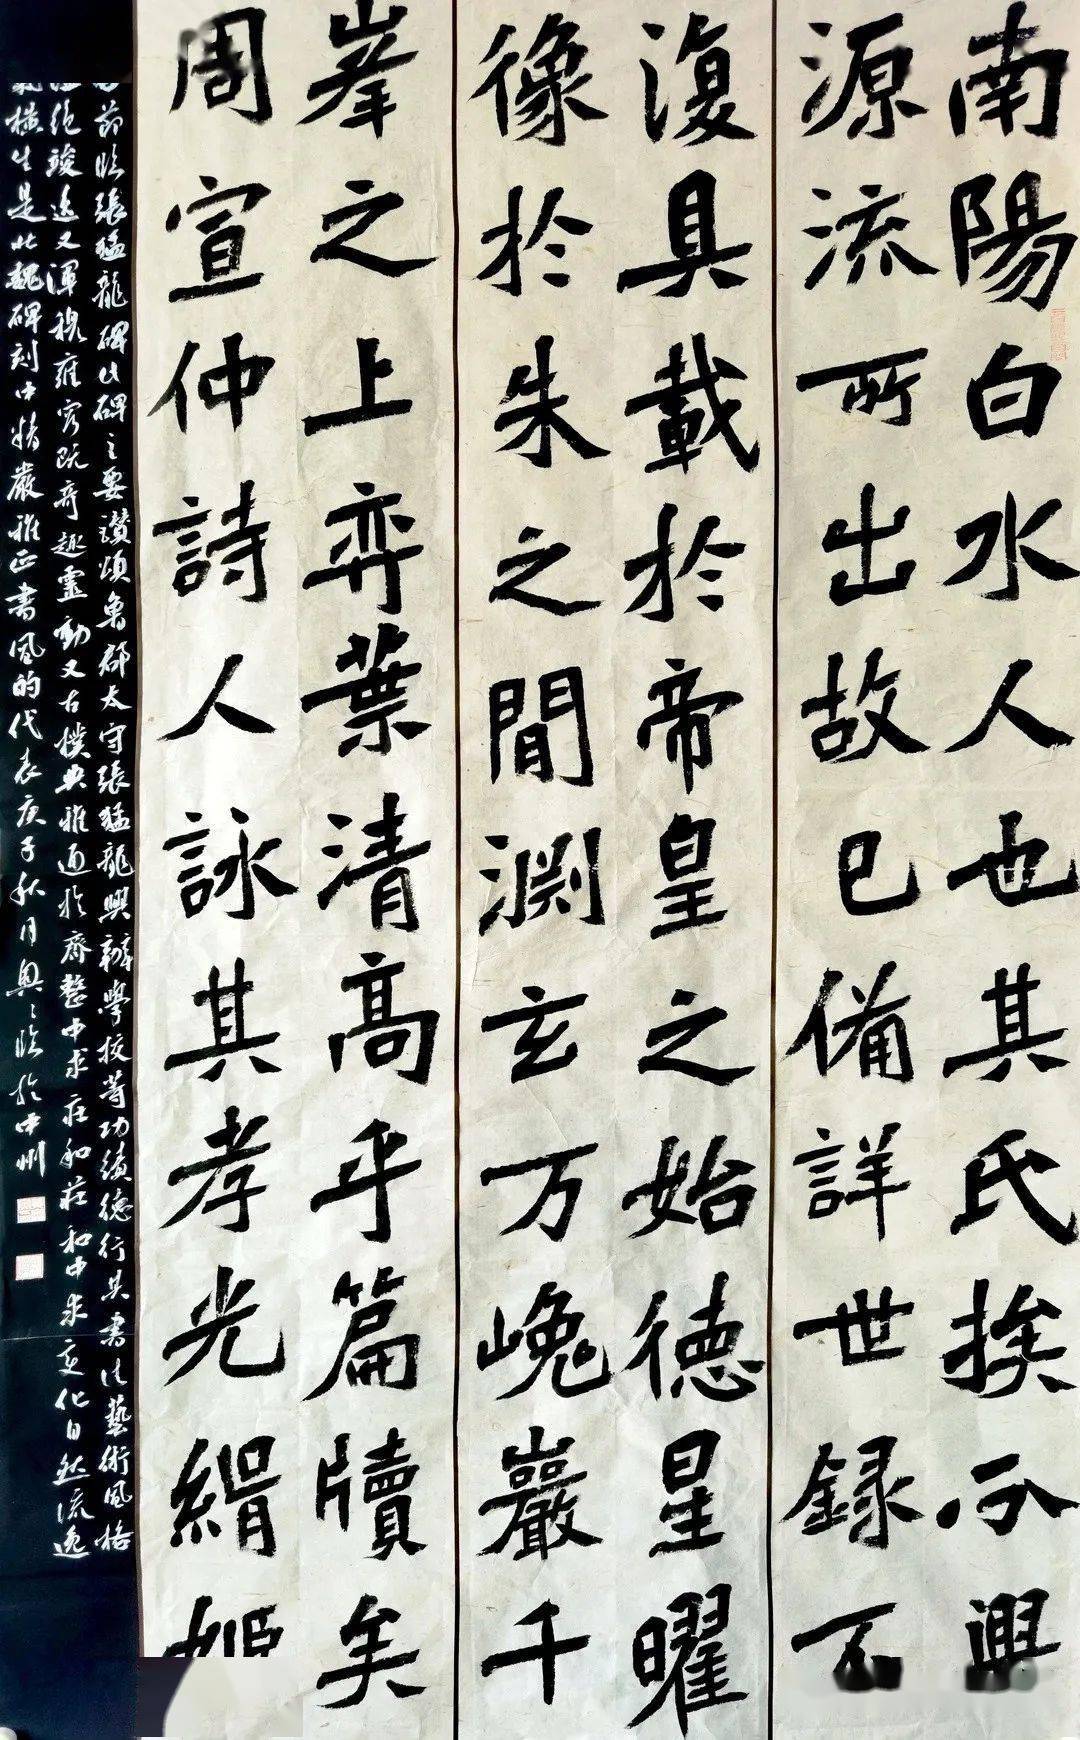 南陽白水人也其氏族分興
源流所出故已備詳世録不
復具載於帝皇之始德星曜
像於朱之間淵玄万峗巖千
峯之上弈葉清高乎篇牘矣
周宣仲詩人詠其孝光緝姬
節臨張猛龍碑此碑主要讚頌魯郡太守張猛龍興辦學校等功績德行其書法藝術風格
絕竣逸又渾穆雍容既奇趣靈動又古樸典雅迺於齊整中求莊和莊和中求变化自然流逸
橫生是北魏碑刻中精嚴雅正書風的代表庚子秋月 臨於中州